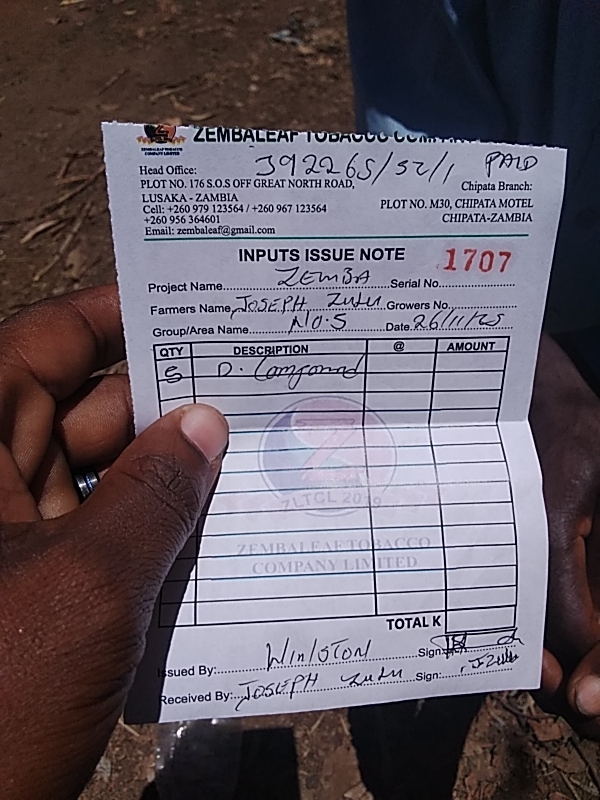 ZEMBALEAF TOBACCO COMPA
ZEMBALEAF TOBACCO
COMPANY LIMITED
392265/52/1 PAID
Head Office:
PLOT NO. 176 S.O.S OFF GREAT NORTH ROAD,
LUSAKA - ZAMBIA
Cell: +260 979 123564 / +260 967 123564
+260 956 364601
Email: zembaleaf@gmail.com
Chipata Branch:
PLOT NO. M30, CHIPATA MOTEL
CHIPATA-ZAMBIA
INPUTS ISSUE NOTE
1707
Project Name ZEMBA Serial No.
Farmers Name JOSEPH ZULU Growers No.
Group/Area Name NO.5 Date 26/11/25
QTY DESCRIPTION @ AMOUNT
5 D. Compound
ZLTCL 2019
ZEMBALEAF TOBACCO
COMPANY LIMITED
TOTAL K
Issued By: WINSTON Sign:
Received By: JOSEPH ZULU Sign: J Zulu